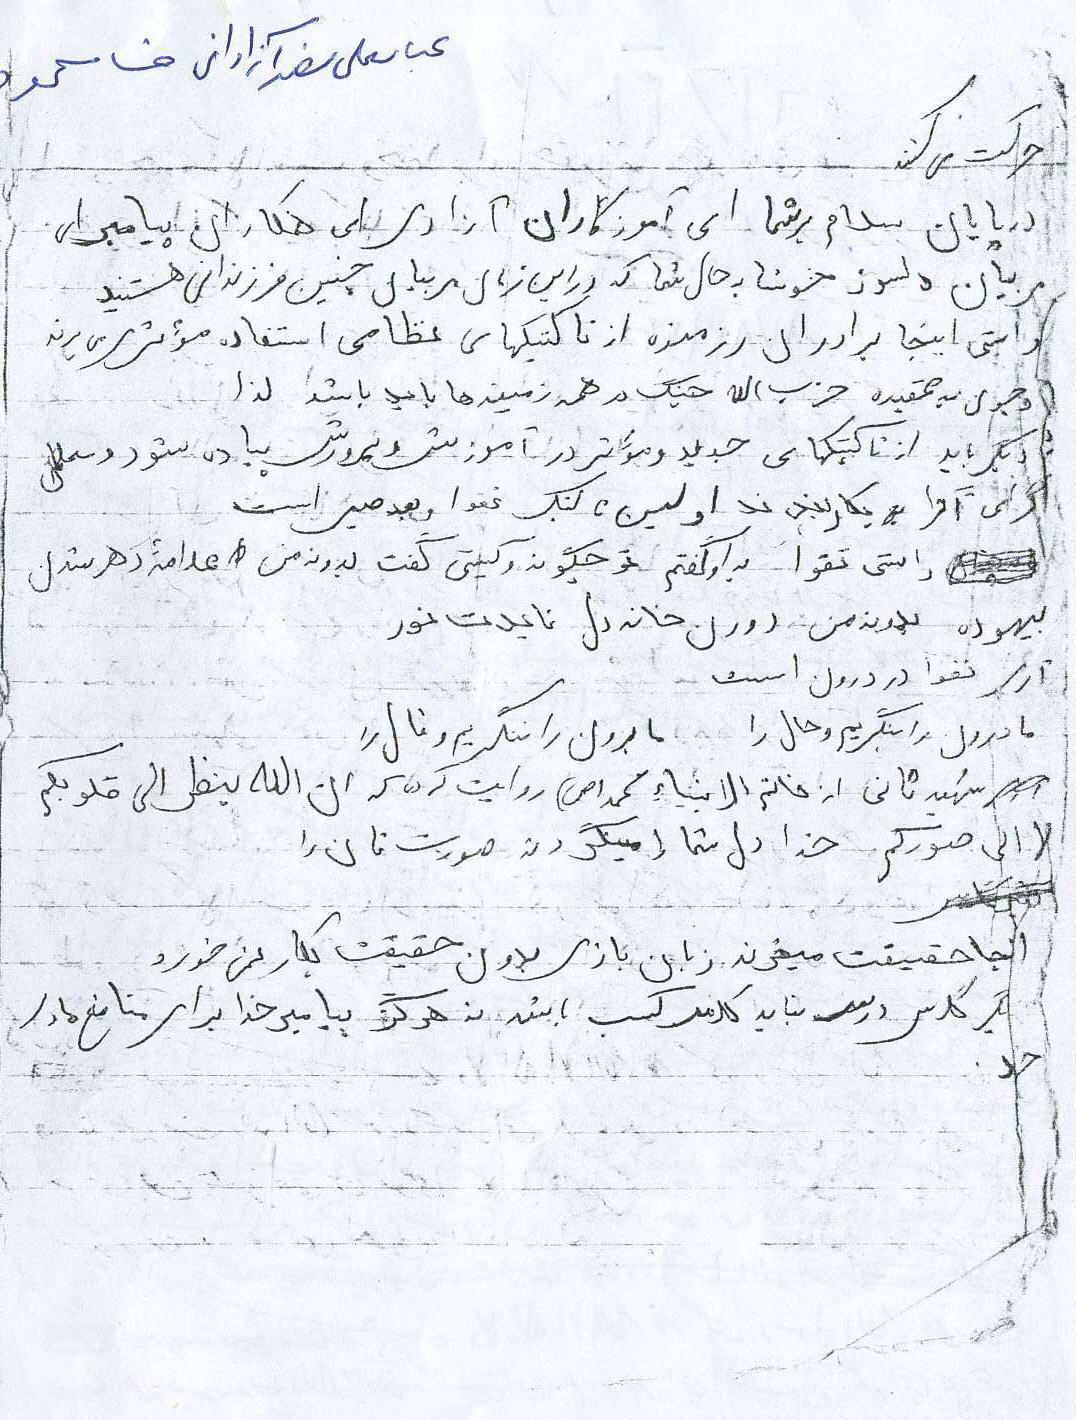 عباسعلی
حرکت می کنند
در پایان سلام بر شما ای آموزگاران آزادی ای همکاران پیامبر ای
مربیان دلسوز خوشا به حال شما که در این زمان مربیان چنین فرزندانی هستید
راستی اینجا برادران رزمنده از تاکتیکهای نظامی استفاده مؤثری می برند
و چون به عقیده حزب الله جنگ در همه زمینه ها باید باشد لذا
دیگر باید از تاکتیکهای جدید و مؤثر در آموزش و پرورش پیاده شود و معلمی
گرامی آنرا بکار بندند اولین تاکتیک تقوا و بعد صبر است
راستی تقوا به او گفتم تو چگونه و کیستی گفت بدون من علامه دهر شدن
بیهوده بدون من درون خانه دل تابدت نور
آری تقوا در درون است
ما درون را بنگریم و حال را ما برون را ننگریم و قال را
شهید ثانی از خاتم الانبیاء محمد (ص) روایت کرده که ان الله ینظر الی قلوبکم
لا الی صورکم خدا دل شما را مینگرد نه صورت تان را
آنجا حقیقت میخرند زبان بازی بدون حقیقت بکار نمی خورد و
کلاس درس نباید کلاس کسب باشد نه هرگز پیامبر خدا برای منافع مادی